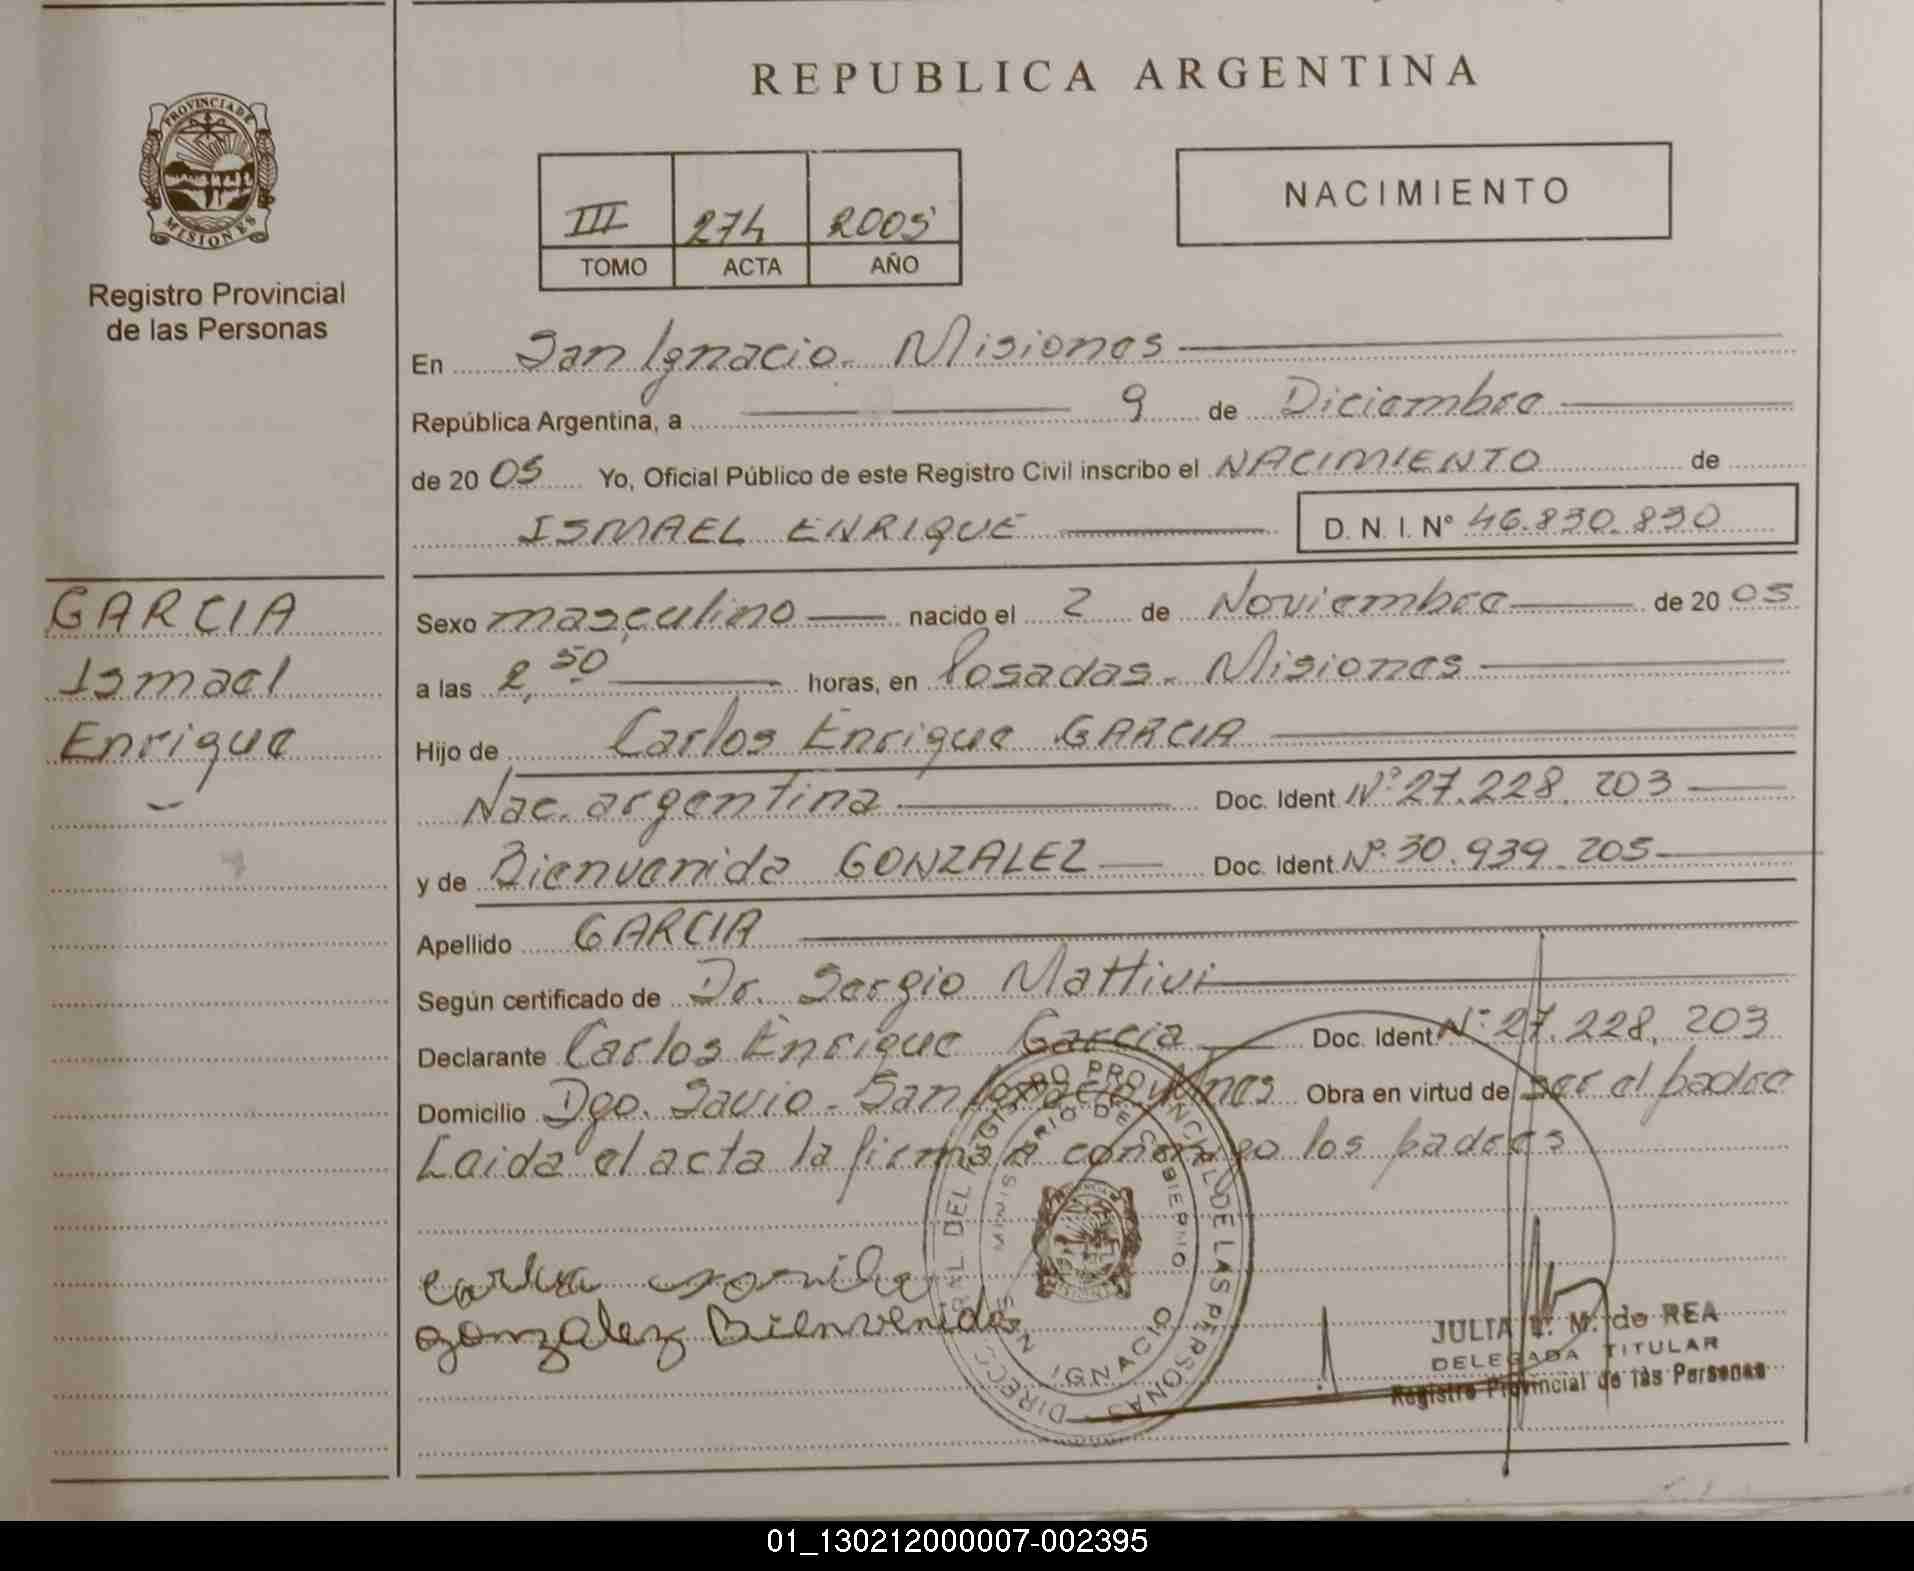 REPUBLICA ARGENTINA
PROVINCIA DE
MISIONES
Registro Provincial
de las Personas
III 274 2005
TOMO ACTA AÑO
NACIMIENTO
En San Ignacio. Misiones
República Argentina, a 9 de Diciembre
de 20 05 Yo, Oficial Público de este Registro Civil inscribo el NACIMIENTO de
ISMAEL ENRIQUE D. N. I. Nº 46.830.830
GARCIA
Ismael
Enrique
Sexo masculino nacido el 2 de Noviembre de 20 05
a las 2,50 horas, en Posadas. Misiones
Hijo de Carlos Enrique GARCIA
Nac. argentina Doc. Ident Nº 27.228.203
y de Bienvenida GONZALEZ Doc. Ident. Nº 30.939.205
Apellido GARCIA
Según certificado de Dr. Sergio Mattivi
Declarante Carlos Enrique Garcia Doc. Ident Nº 27.228.203
Domicilio Dgo. Savio - San Ignacio Mnes Obra en virtud de ser el padre
Leida el acta la firman conmigo los padres
gonzalez Bienvenida
MINISTERIO DE GOBIERNO
IGNACIO
JULIA M. de REA
DELEGADA TITULAR
Registro Provincial de las Personas
01_130212000007-002395